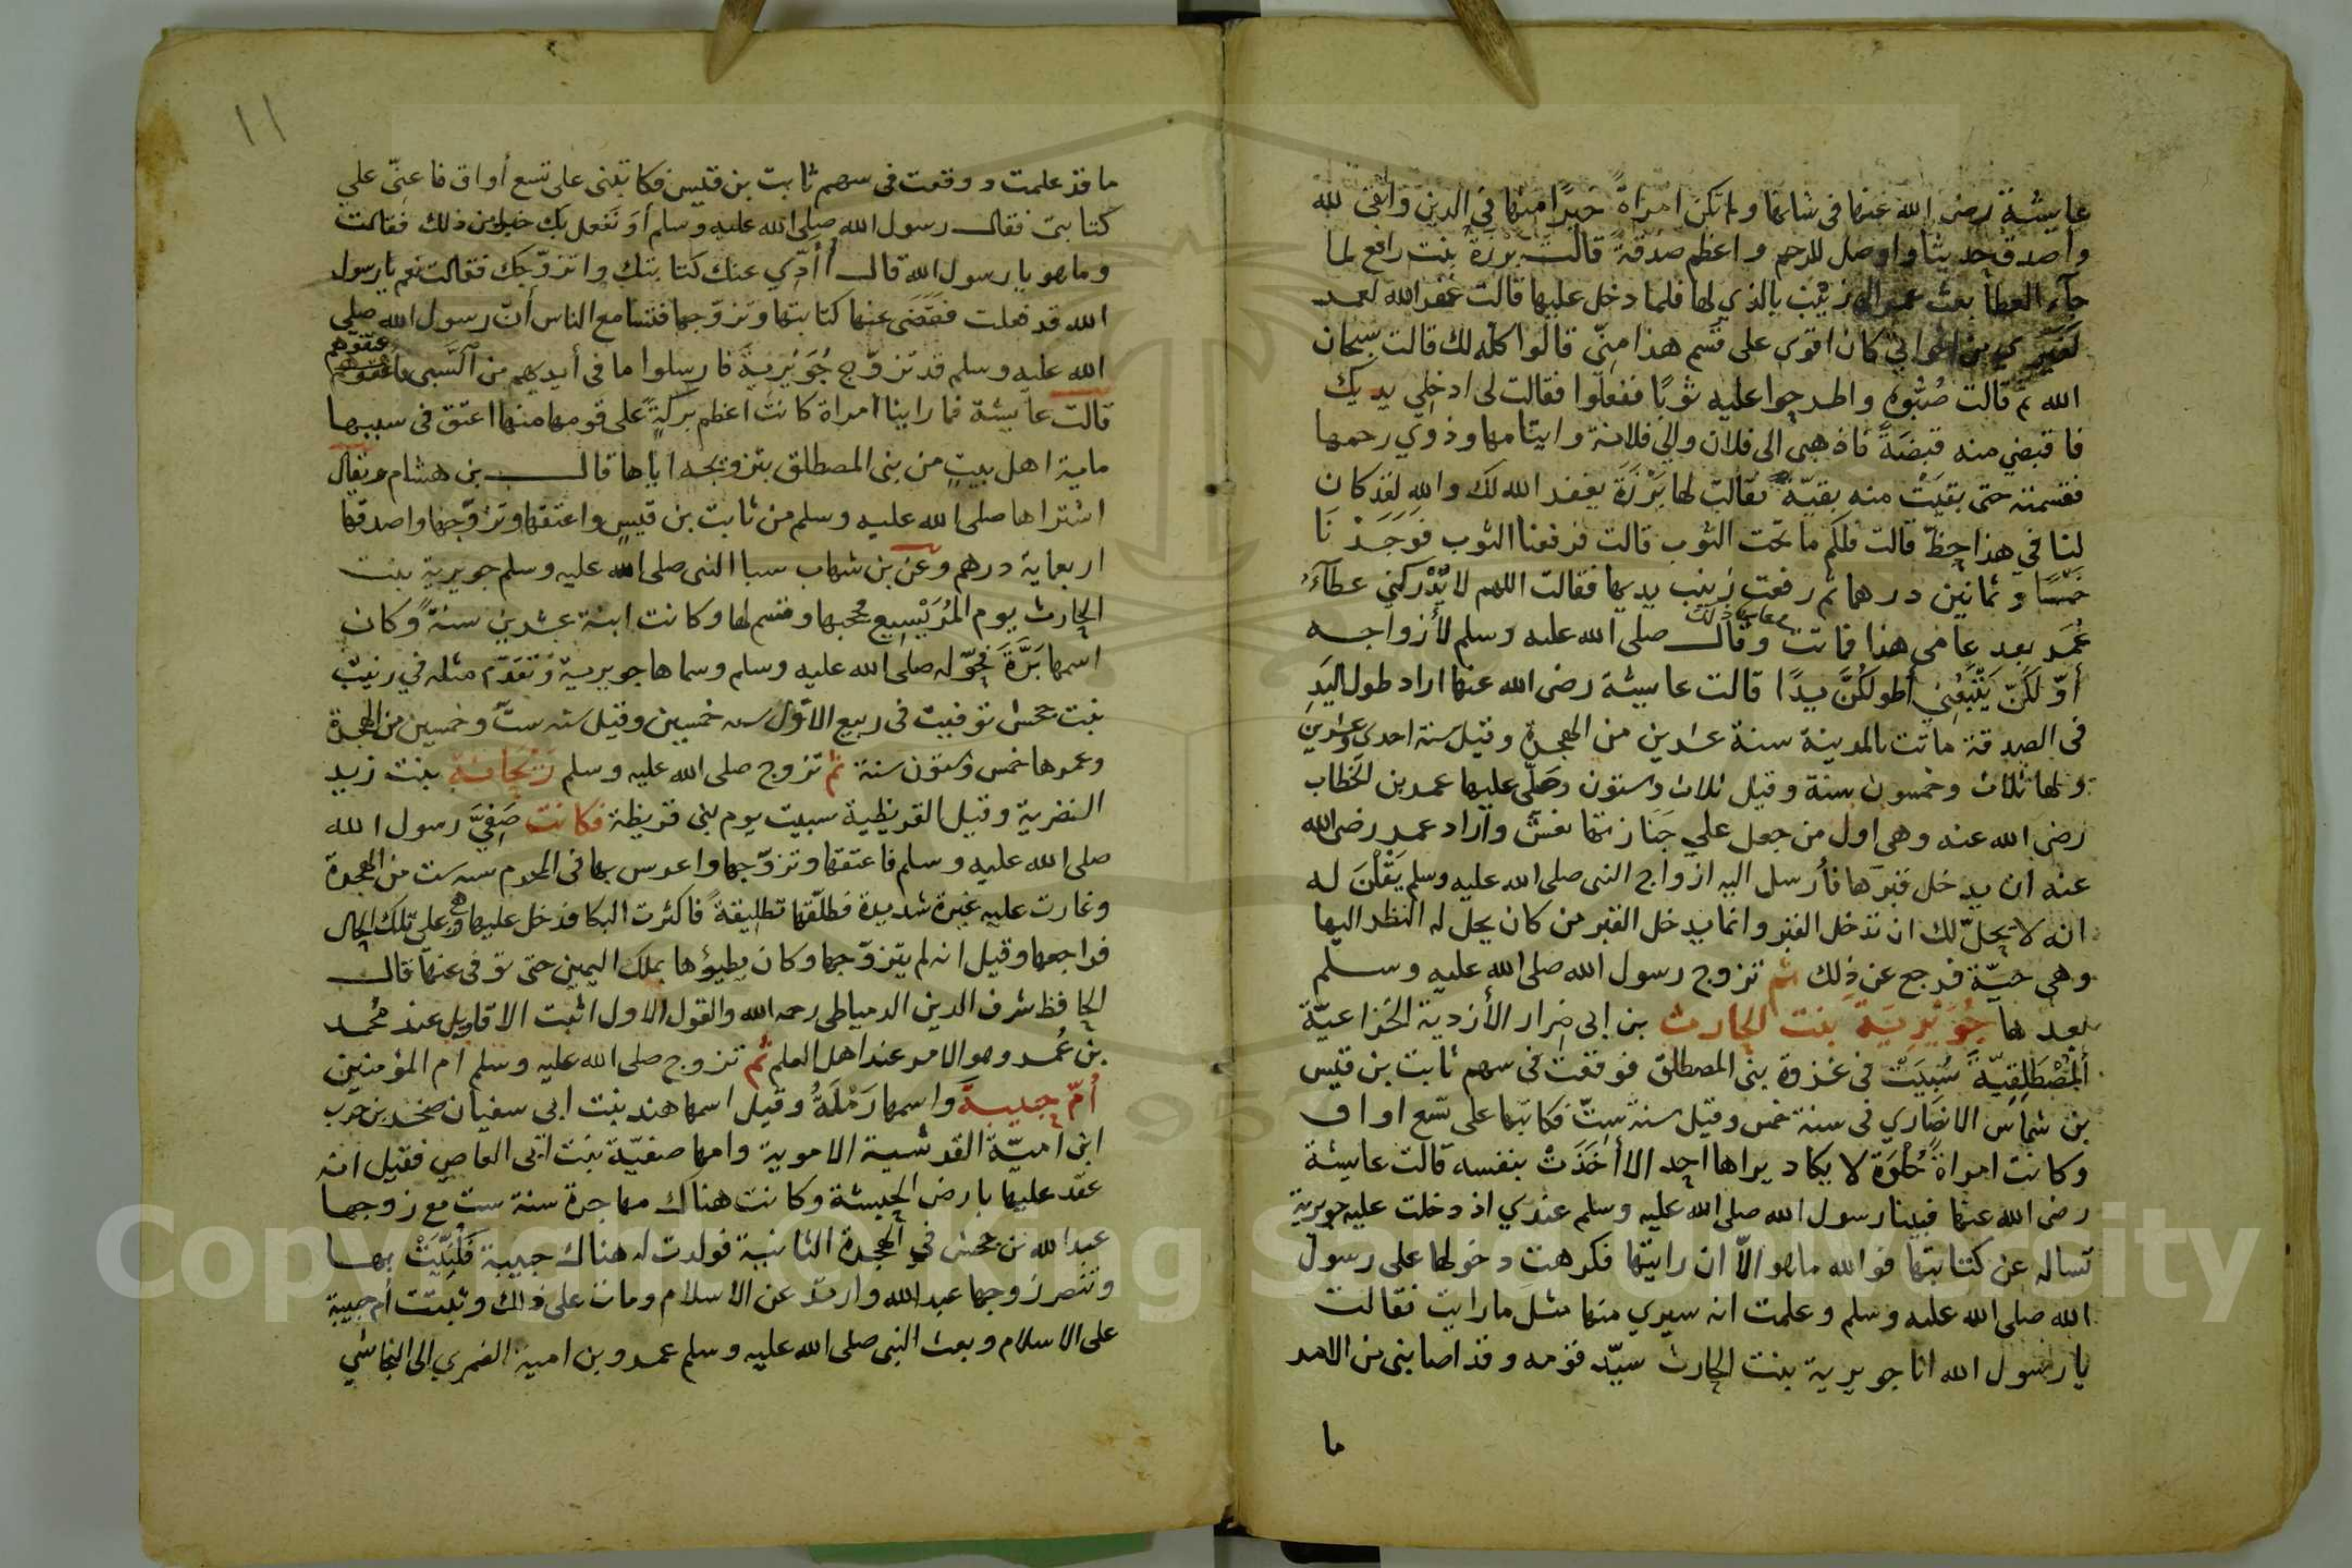 عايشة رضى الله عنها فى شانها ولم تكن امراة خيرا منها فى الدين واتقى لله
واصدق حديثا واوصل للرحم واعظم صدقة قالت برزة بنت رافع لما
جآء العطا بعث عمر الى زينب بالذي لها فلما دخل عليها قالت غفر الله لعمر
لغيري من اخواتي كان اقوى على قسم هذا منّي قالوا كله لك قالت سبحان
الله ثم قالت صُبُّوه واطرحوا عليه ثوبًا ففعلوا فقالت لى ادخلي يديك
فاقبضي منه قبضَةً فاذهبى الى فلان والى فلانة وايتامها وذوي رحمها
فقسمته حتى بقيَتْ منه بقيّة فقالت لها بَرْزَةَ يغفر الله لك والله لقد كان
لنا في هذا حظّ قالت فلكم ما تحت الثوب قالت فرفعنا الثوب فوَجَدْنَا
خمسًا وثمانين درهما ثم رفعت زينب يديها فقالت اللهم لا يُدْركني عطآءُ
عُمَر بعد عامى هذا فماتت وقال صلى الله عليه وسلم لأزواجه
أوّلكنّ يَتْبَعُنِي أطولكُنَّ يدًا قالت عايشة رضى الله عنها اراد طول اليَدِ
فى الصدقة ماتت بالمدينة سنة عشرين من الهجرة وقيل سنة احدى وعشرين
ولها ثلاث وخمسون سنة وقيل ثلاث وستون وصَلّى عليها عمر بن الخطاب
رضى الله عنه وهى اول من جعل علي جَنازتها نعشٌ وأراد عمر رضى الله
عنه ان يدخل قبرَها فأرسل اليه ازواج النبى صلى الله عليه وسلم يَقُلْنَ له
انه لا يحلّ لك ان تدخل القبر وانما يدخل القبر من كان يحل له النظر اليها
وهى حيّة فرجع عن ذلك ثم تزوج رسول الله صلى الله عليه وسلم
بعدها جُوَيْرِيَة بنت الحارث بن ابى ضِرار الأزدية الخزاعيّة
المُصْطَلِقِيّة سُبِيَتْ فى غزوة بنى المصطلق فوقعت فى سهم ثابت بن قيس
بن شماس الانصاري فى سنة خمس وقيل سنة ستّ فكاتبها على تسع اواق
وكانت امراة حُلْوَة لا يكاد يراها احد الا أخَذَتْ بنفسه قالت عايشة
رضى الله عنها فبينا رسول الله صلى الله عليه وسلم عندي اذ دخلت عليه جويرية
تساله عن كتابتها فوالله ما هو الاّ ان رايتها فكرهت دخولها على رسول
الله صلى الله عليه وسلم وعلمت انه سيري منها مثل ما رايت فقالت
يا رسول الله انا جويرية بنت الحارث سيّد قومه وقد اصابنى من الامر
ما
١١
ما قد علمت ووقعت فى سهم ثابت بن قيس فكاتبنى على تسع أواق فاعنّى علي
كتابتى فقال رسول الله صلى الله عليه وسلم أوَ نفعل بك خيرا من ذلك فقالت
وما هو يا رسول الله قال أأدّي عنك كتابتك واتزوّجك فقالت نعم يا رسول
الله قد فعلت فقضَى عنها كتابتها وتزوّجها فتسامع الناس أنّ رسول الله صلى
الله عليه وسلم قد تزوّج جُوَيْرِيةَ فارسلوا ما فى أيديهم من السَّبى واعتقوهم
قالت عايشة فما راينا امراة كانت اعظم بركةً على قومها منها اعتق فى سببها
ماية اهل بيتٍ من بنى المصطلق بتزويجه اياها قال بن هشام ويقال
اشتراها صلى الله عليه وسلم من ثابت بن قيسٍ واعتقها وتزوّجها واصدقها
اربعماية درهم وعن بن شهاب سبا النبى صلى الله عليه وسلم جويرية بنت
الحارث يوم المُرَيْسِيع فحجبها وقسم لها وكانت ابنة عشرين سنةً وكان
اسمها بَرَّةَ فحوّله صلى الله عليه وسلم وسماها جويرية وتقدّم مثله في زينب
بنت جحش توفيت فى ربيع الاوّل سنه خمسين وقيل سنه ستّ وخمسين من الهجرة
وعمرها خمس وستون سنة ثم تزوج صلى الله عليه وسلم رَيْحَانة بنت زيد
النضرية وقيل القريظية سبيت يوم بنى قريظة فكانت صَفِيَّ رسول الله
صلى الله عليه وسلم فاعتقها وتزوّجها واعرس بها فى المحرم سنه ست من الهجرة
وغارت عليه غيرة شديدة فطلّقها تطليقةً فاكثرت البكا فدخل عليها وهى على تلك الحال
فراجعها وقيل انه لم يتزوّجها وكان يطيؤها بملك اليمين حتى توفى عنها قال
الحافظ شرف الدين الدمياطى رحمه الله والقول الاول اثبت الاقاويل عند محمد
بن عُمر وهو الامر عند اهل العلم ثم تزوج صلى الله عليه وسلم ام المؤمنين
أُمّ حبيبةَ واسمها رَمْلَةُ وقيل اسمها هند بنت ابى سفيان صخر بن حرب
ابن اميّة القرشية الاموية وامها صفيّة بنت ابى العاص فقيل انه
عقد عليها بارض الحبشة وكانت هناك مهاجرة سنة ست مع زوجها
عبد الله بن جحش في الهجرة الثانية فولدت له هناك حبيبة فكُنِّيَتْ بها
وتنصر زوجها عبد الله وارتدّ عن الاسلام ومات على ذلك وثبتت أم حبيبة
على الاسلام وبعث النبى صلى الله عليه وسلم عمرو بن امية الضمري الى النجاشي
Copyright © King Saud University